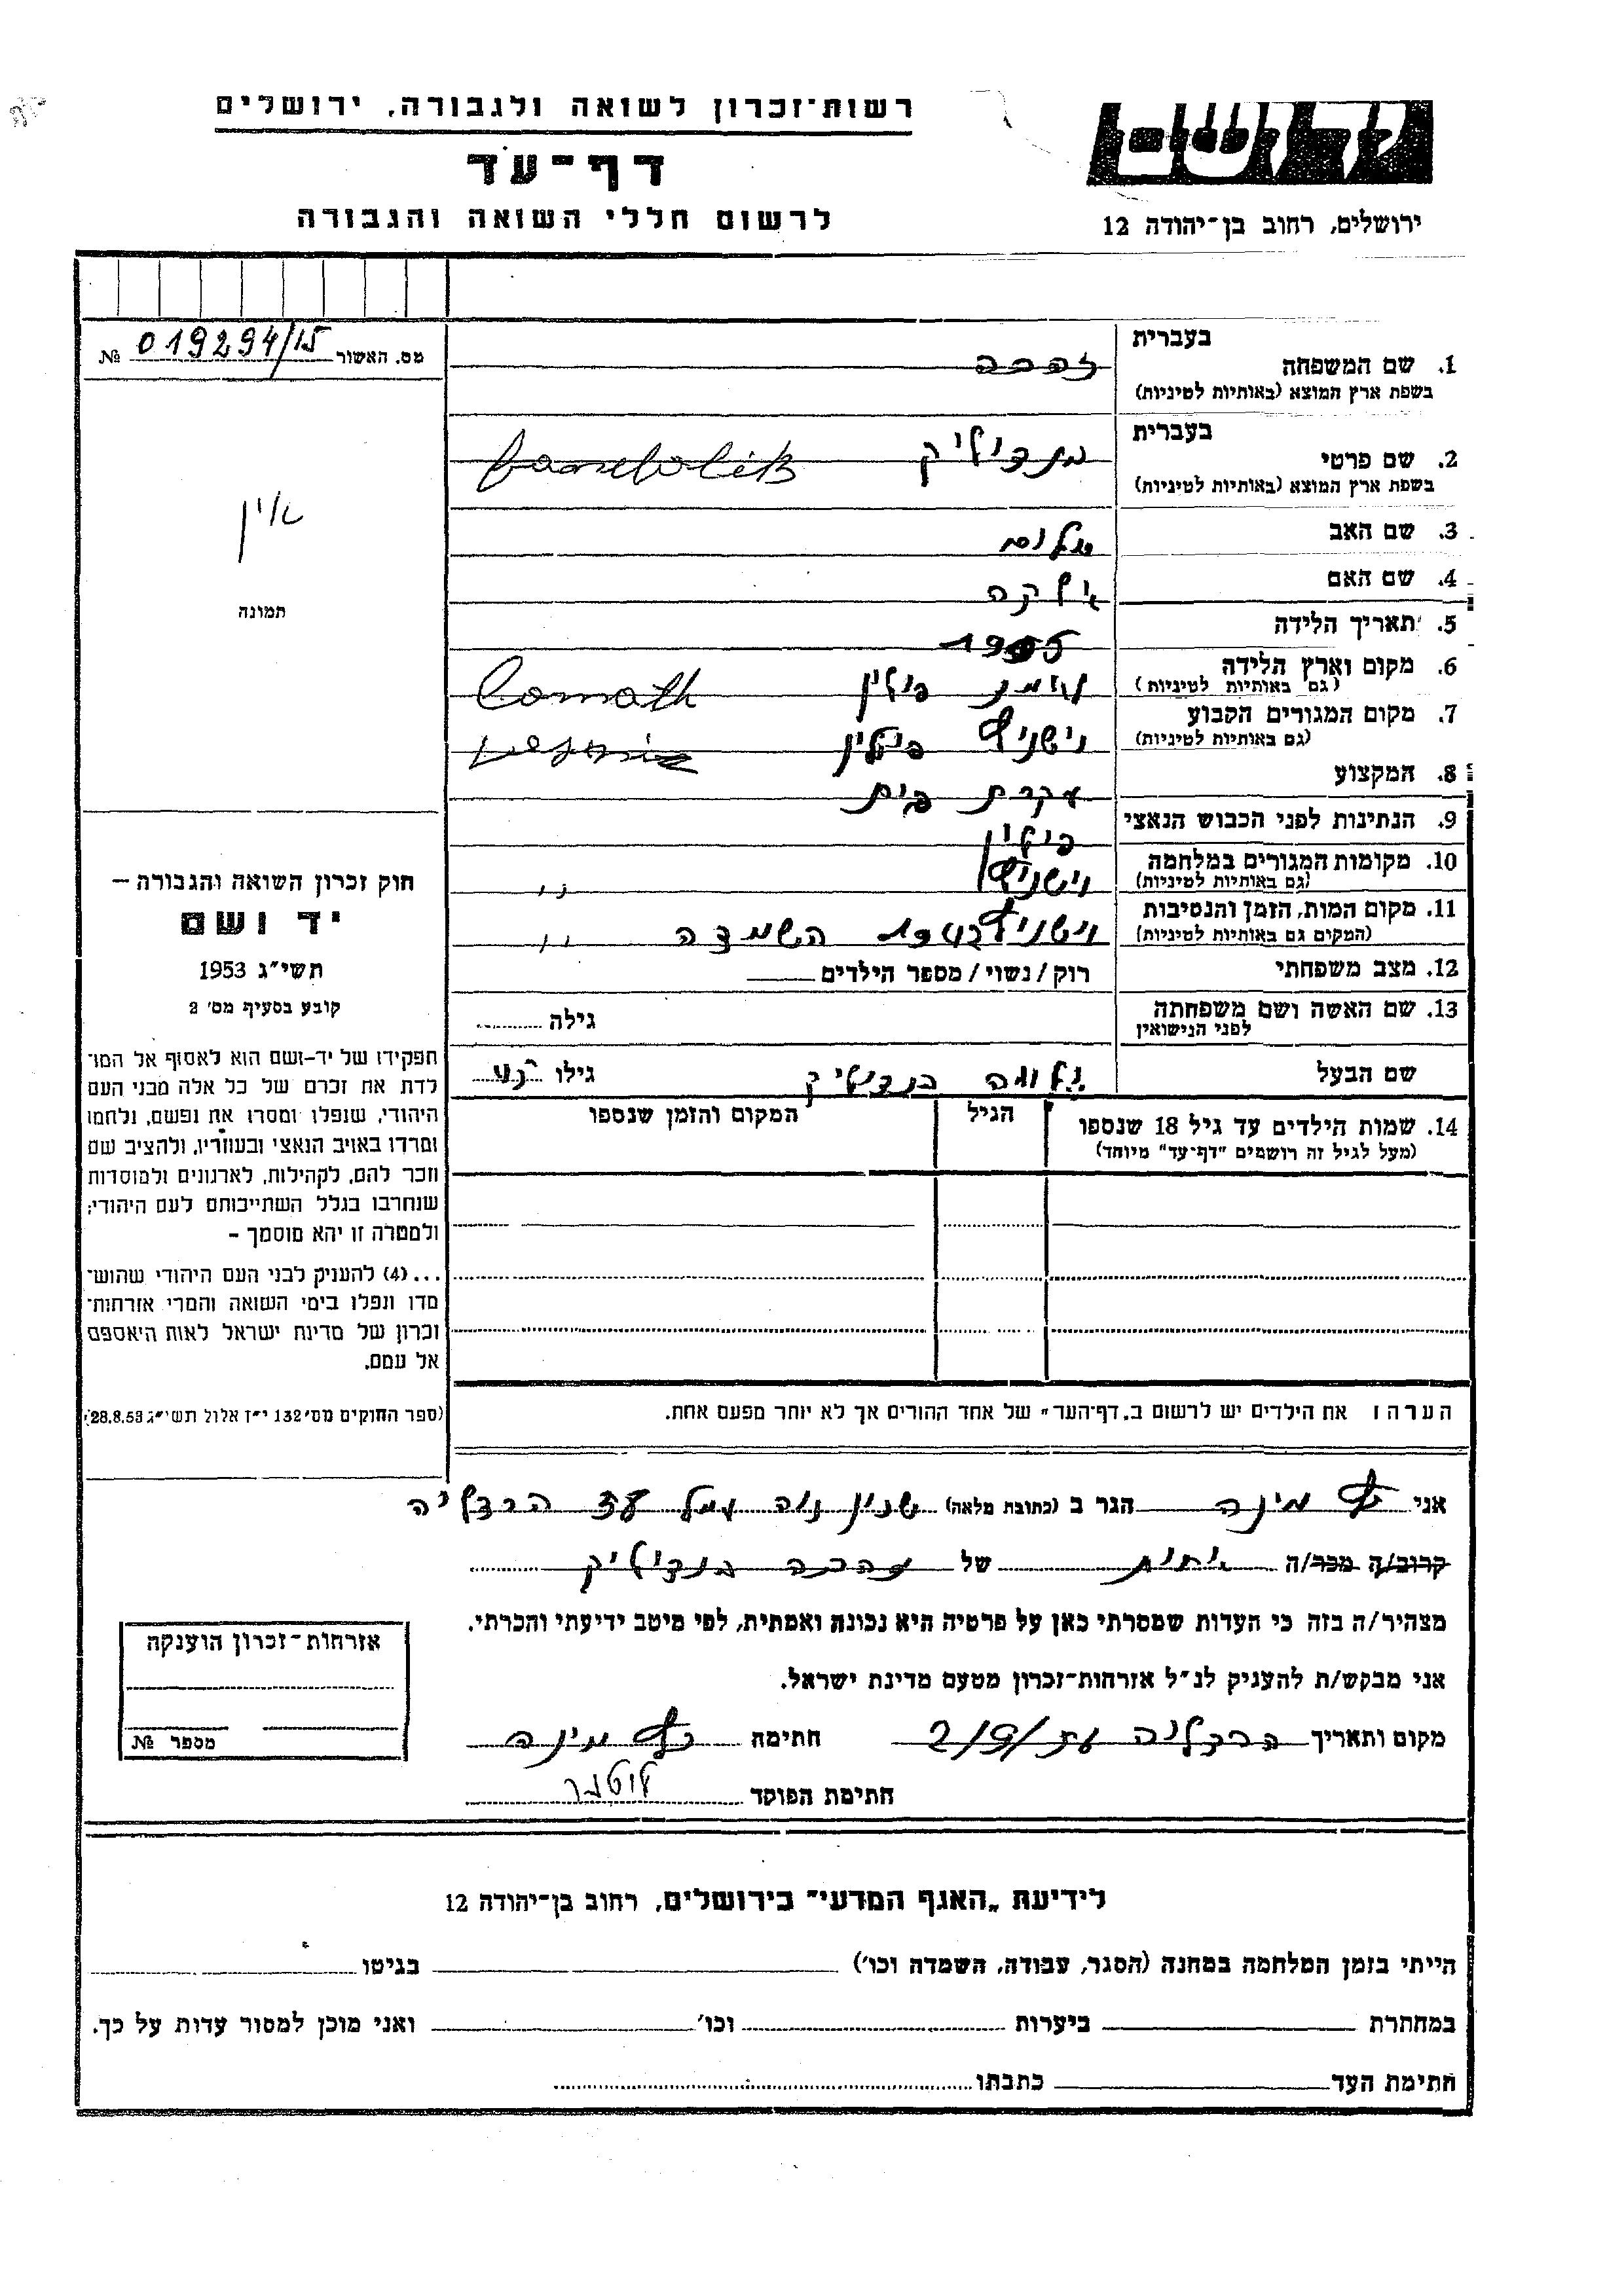 רשות־זכרון לשואה ולגבורה, ירושלים
דף־עד
לרשום חללי השואה והגבורה
ירושלים, רחוב בן־יהודה 12
מס. האשור 019294/15 №
בעברית
1. שם המשפחה
בשפת ארץ המוצא (באותיות לטיניות)
בעברית
2. שם פרטי
בשפת ארץ המוצא (באותיות לטיניות)
3. שם האב שלום
4. שם האם
5. תאריך הלידה
6. מקום וארץ הלידה פולין
(גם באותיות לטיניות)
7. מקום המגורים הקבוע פולין
(גם באותיות לטיניות)
8. המקצוע עקרת בית
9. הנתינות לפני הכבוש הנאצי פולין
10. מקומות המגורים במלחמה
(גם באותיות לטיניות)
11. מקום המות, הזמן והנסיבות השמדה
(המקום גם באותיות לטיניות)
12. מצב משפחתי רוק/נשוי/מספר הילדים
13. שם האשה ושם משפחתה גילה
לפני הנישואין
שם הבעל גילו
14. שמות הילדים עד גיל 18 שנספו הגיל המקום והזמן שנספו
(מעל לגיל זה רושמים "דף־עד" מיוחד)
הערה: את הילדים יש לרשום ב„דף־העד" של אחד ההורים אך לא יותר מפעם אחת.
אין
תמונה
חוק זכרון השואה והגבורה –
יד ושם
תשי״ג 1953
קובע בסעיף מס׳ 2
תפקידו של יד־ושם הוא לאסוף אל המו־
לדת את זכרם של כל אלה מבני העם
היהודי, שנפלו ומסרו את נפשם, נלחמו
ומרדו באויב הנאצי ובעוזריו, ולהציב שם
וזכר להם, לקהילות, לארגונים ולמוסדות
שנחרבו בגלל השתייכותם לעם היהודי;
ולמטרה זו יהא מוסמך –
...(4) להעניק לבני העם היהודי שהוש־
מדו ונפלו בימי השואה והמרי אזרחות־
זכרון של מדינת ישראל לאות היאספם
אל עמם.
(ספר החוקים מס׳ 132 י״ז אלול תשי״ג 28.8.53)
אני מינה הגר ב (כתובת מלאה) שכון נוה עמל הרצליה
קרוב/ה מכר/ה של
מצהיר/ה בזה כי העדות שמסרתי כאן על פרטיה היא נכונה ואמתית, לפי מיטב ידיעתי והכרתי.
אני מבקש/ת להעניק לנ״ל אזרחות־זכרון מטעם מדינת ישראל.
מקום ותאריך הרצליה חתימה מינה
חתימת הפוקד
אזרחות־זכרון הוענקה
מספר №
לידיעת „האגף המדעי" בירושלים, רחוב בן־יהודה 12
הייתי בזמן המלחמה במחנה (הסגר, עבודה, השמדה וכו׳) בגיטו
במחתרת ביערות וכו׳ ואני מוכן למסור עדות על כך.
חתימת העד כתבתו